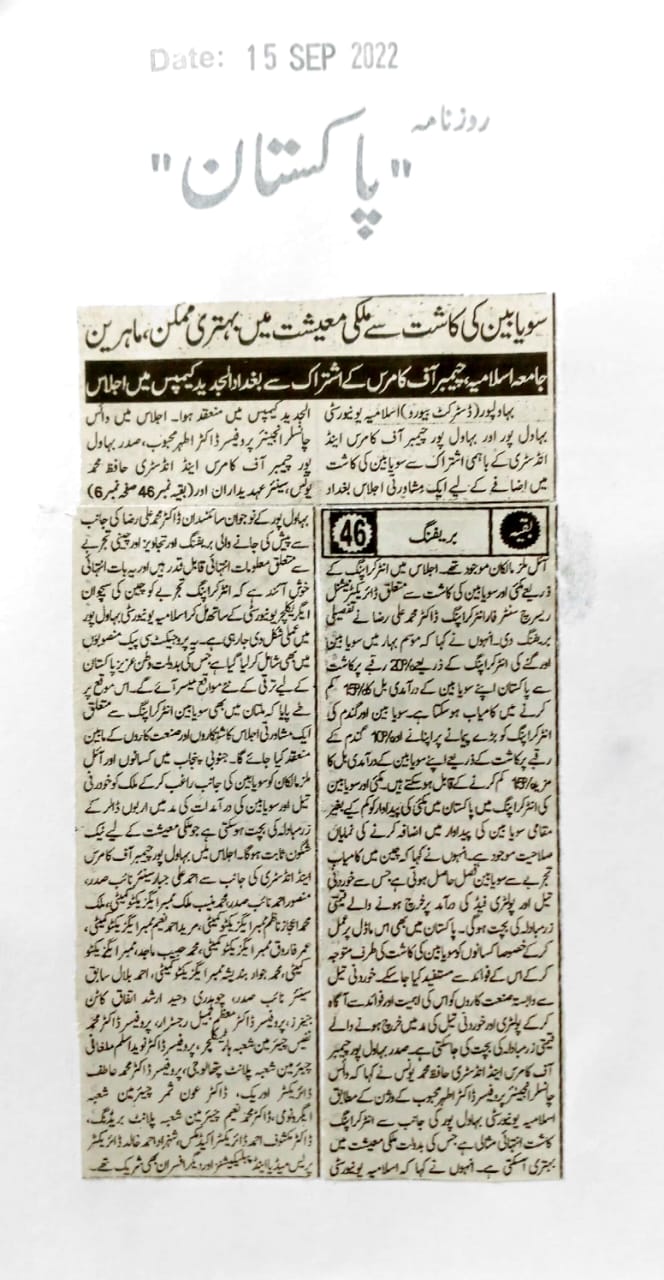 Date: 15 SEP 2022
روزنامہ
"پاکستان"
سویا بین کی کاشت سے ملکی معیشت میں بہتری ممکن، ماہرین
جامعہ اسلامیہ، چیمبر آف کامرس کے اشتراک سے بغداد الجدید کیمپس میں اجلاس
بہاولپور (ڈسٹرکٹ بیورو) اسلامیہ یونیورسٹی
بہاول پور اور بہاول پور چیمبر آف کامرس اینڈ
انڈسٹری کے باہمی اشتراک سے سویا بین کی کاشت
میں اضافے کے لیے ایک مشاورتی اجلاس بغداد
الجدید کیمپس میں منعقد ہوا۔ اجلاس میں وائس
چانسلر انجینئر پروفیسر ڈاکٹر اطہر محبوب، صدر بہاول
پور چیمبر آف کامرس اینڈ انڈسٹری حافظ محمد
یونس، سینئر عہدیداران اور (بقیہ نمبر 46 صفحہ نمبر 6)
بقیہ
بریفنگ
46
آئل ملز مالکان موجود تھے۔ اجلاس میں انٹرکراپنگ کے
ذریعے مکئی اور سویا بین کی کاشت سے متعلق ڈائریکٹر نیشنل
ریسرچ سنٹر فار انٹرکراپنگ ڈاکٹر محمد علی رضا نے تفصیلی
بریفنگ دی۔ انہوں نے کہا کہ موسم بہار میں سویا بین
اور گنے کی انٹرکراپنگ کے ذریعے 20% رقبے پر کاشت
سے پاکستان اپنے سویا بین کے درآمدی بل کا 15% کم
کرنے میں کامیاب ہو سکتا ہے۔ سویا بین اور گندم کی
انٹرکراپنگ کو بڑے پیمانے پر اپنانے اور 10% گندم کے
رقبے پر کاشت کے ذریعے اپنے سویا بین کے درآمدی بل کا
مزید 15% کم کرنے کے قابل ہو سکتے ہیں۔ مکئی اور سویا بین
کی انٹرکراپنگ میں پاکستان میں مکئی کی پیداوار کو کم کیے بغیر
مقامی سویا بین کی پیداوار میں اضافہ کرنے کی نمایاں
صلاحیت موجود ہے۔ انہوں نے کہا کہ چین میں کامیاب
تجربے سے سویا بین فصل حاصل ہوئی ہے جس سے خوردنی
تیل اور پولٹری فیڈ کی درآمد پر خرچ ہونے والے قیمتی
زرمبادلہ کی بچت ہوگی۔ پاکستان میں بھی اس ماڈل پر عمل
کر کے خصوصاً کسانوں کو سویا بین کی کاشت کی طرف متوجہ
کر کے اس کے فوائد سے مستفید کیا جا سکے۔ خوردنی تیل
سے وابستہ صنعت کاروں کو اس کی اہمیت اور فوائد سے آگاہ
کر کے پولٹری اور خوردنی تیل کی مد میں خرچ ہونے والے
قیمتی زرمبادلہ کی بچت کی جا سکتی ہے۔ صدر بہاول پور چیمبر
آف کامرس اینڈ انڈسٹری حافظ محمد یونس نے کہا کہ وائس
چانسلر انجینئر پروفیسر ڈاکٹر اطہر محبوب کے وژن کے مطابق
اسلامیہ یونیورسٹی بہاول پور کی جانب سے انٹرکراپنگ
کاشت انتہائی مثالی ہے جس کی بدولت ملکی معیشت میں
بہتری آ سکتی ہے۔ انہوں نے کہا کہ اسلامیہ یونیورسٹی
بہاول پور کے نوجوان سائنسدان ڈاکٹر محمد علی رضا کی جانب
سے پیش کی جانے والی بریفنگ اور تجاویز اور چینی تجربے
سے متعلق معلومات انتہائی قابل قدر ہیں اور یہ بات انتہائی
خوش آئند ہے کہ انٹرکراپنگ تجربے کو چین کی سیچوان
ایگریکلچر یونیورسٹی کے ساتھ مل کر اسلامیہ یونیورسٹی بہاول پور
میں عملی شکل دی جا رہی ہے۔ یہ پروجیکٹ سی پیک منصوبوں
میں بھی شامل کر لیا گیا ہے جس کی بدولت وطن عزیز پاکستان
کے لیے ترقی کے نئے مواقع میسر آئے گے۔ اس موقع پر
طے پایا کہ ملتان میں بھی سویا بین انٹرکراپنگ سے متعلق
ایک مشاورتی اجلاس کاشتکاروں اور صنعت کاروں کے مابین
منعقد کیا جائے گا۔ جنوبی پنجاب میں کسانوں اور آئل
ملز مالکان کو سویا بین کی جانب راغب کر کے ملک کو خوردنی
تیل اور سویا بین کی درآمدات کی مد میں اربوں ڈالر کے
زرمبادلہ کی بچت ہو سکتی ہے جو ملکی معیشت کے لیے نیک
شگون ثابت ہوگا۔ اجلاس میں بہاول پور چیمبر آف کامرس
اینڈ انڈسٹری کی جانب سے احمد علی جبار سینئر نائب صدر،
منصور احمد نائب صدر، محمد منیب ملک ممبر ایگزیکٹو کمیٹی، ملک
محمد اعجاز ناظم ممبر ایگزیکٹو کمیٹی، مرید احمد نعیم ممبر ایگزیکٹو کمیٹی،
عمر فاروق ممبر ایگزیکٹو کمیٹی، محمد حبیب ماجد، ممبر ایگزیکٹو
کمیٹی، محمد جواد بندیشہ ممبر ایگزیکٹو کمیٹی، احمد بلال سابق
سینئر نائب صدر، چوہدری وحید ارشد اتفاق کاٹن
جینرز، پروفیسر ڈاکٹر معظم جمیل رجسٹرار، پروفیسر ڈاکٹر محمد
نفیس چیئرمین شعبہ ہارٹیکلچر، پروفیسر ڈاکٹر نوید اسلم ملغانی
چیئرمین شعبہ پلانٹ پتھالوجی، پروفیسر ڈاکٹر محمد عاطف
ڈائریکٹر اورک، ڈاکٹر عون ثمر چیئرمین شعبہ
ایگرونومی، ڈاکٹر محمد نعیم چیئرمین شعبہ پلانٹ بریڈنگ،
ڈاکٹر مکشوف احمد ڈائریکٹر اکیڈمکس، شہزاد احمد خالد ڈائریکٹر
پریس میڈیا اینڈ پبلیکیشنز اور دیگر افسران بھی شریک تھے۔